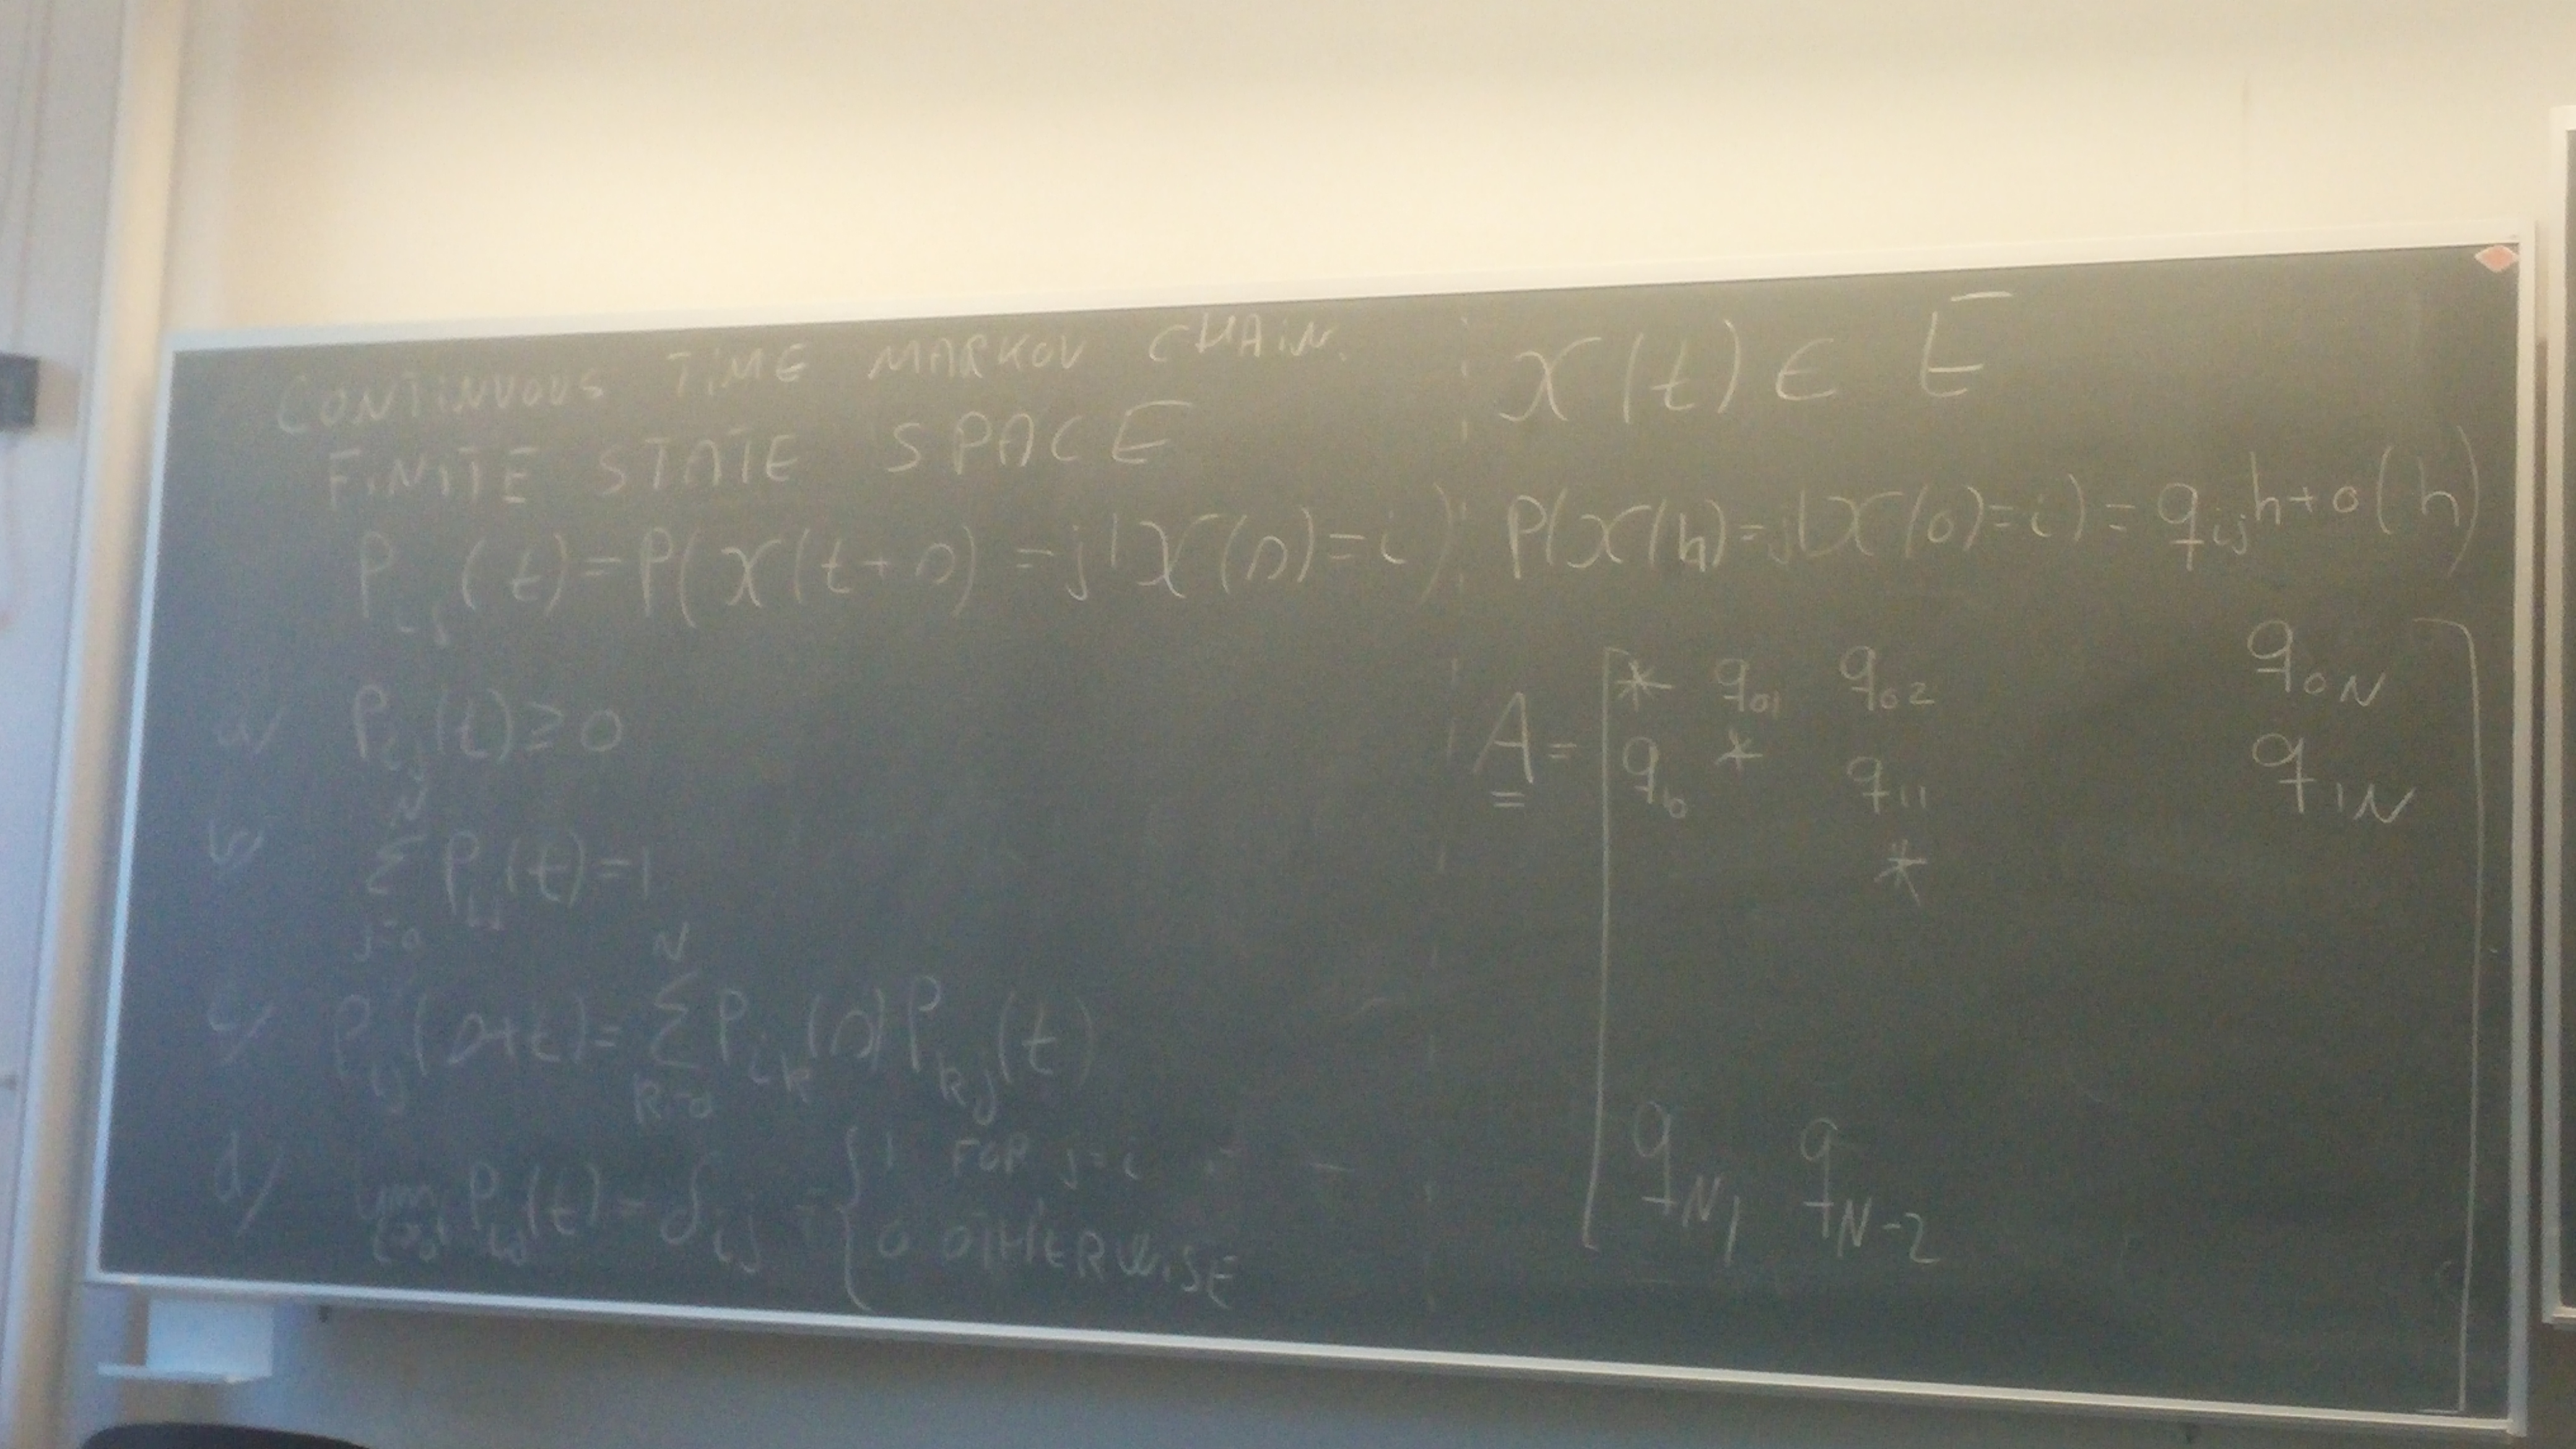 CONTINUOUS TIME MARKOV CHAIN.
FINITE STATE SPACE
P_ij(t)=P(X(t+s)=j|X(s)=i)
a/ P_ij(t)≥0
b/ Σ_{j=0}^{N} P_ij(t)=1
c/ P_ij(s+t)=Σ_{k=0}^{N} P_ik(s)P_kj(t)
d/ lim_{t→0} P_ij(t)=δ_ij={1 FOR j=i
0 OTHERWISE
X(t) ∈ E
P(X(h)=j|X(0)=i)=q_ij h+o(h)
* q_01 q_02 q_0N
A= q_10 * q_11 q_1N
*
q_N1 q_N-2